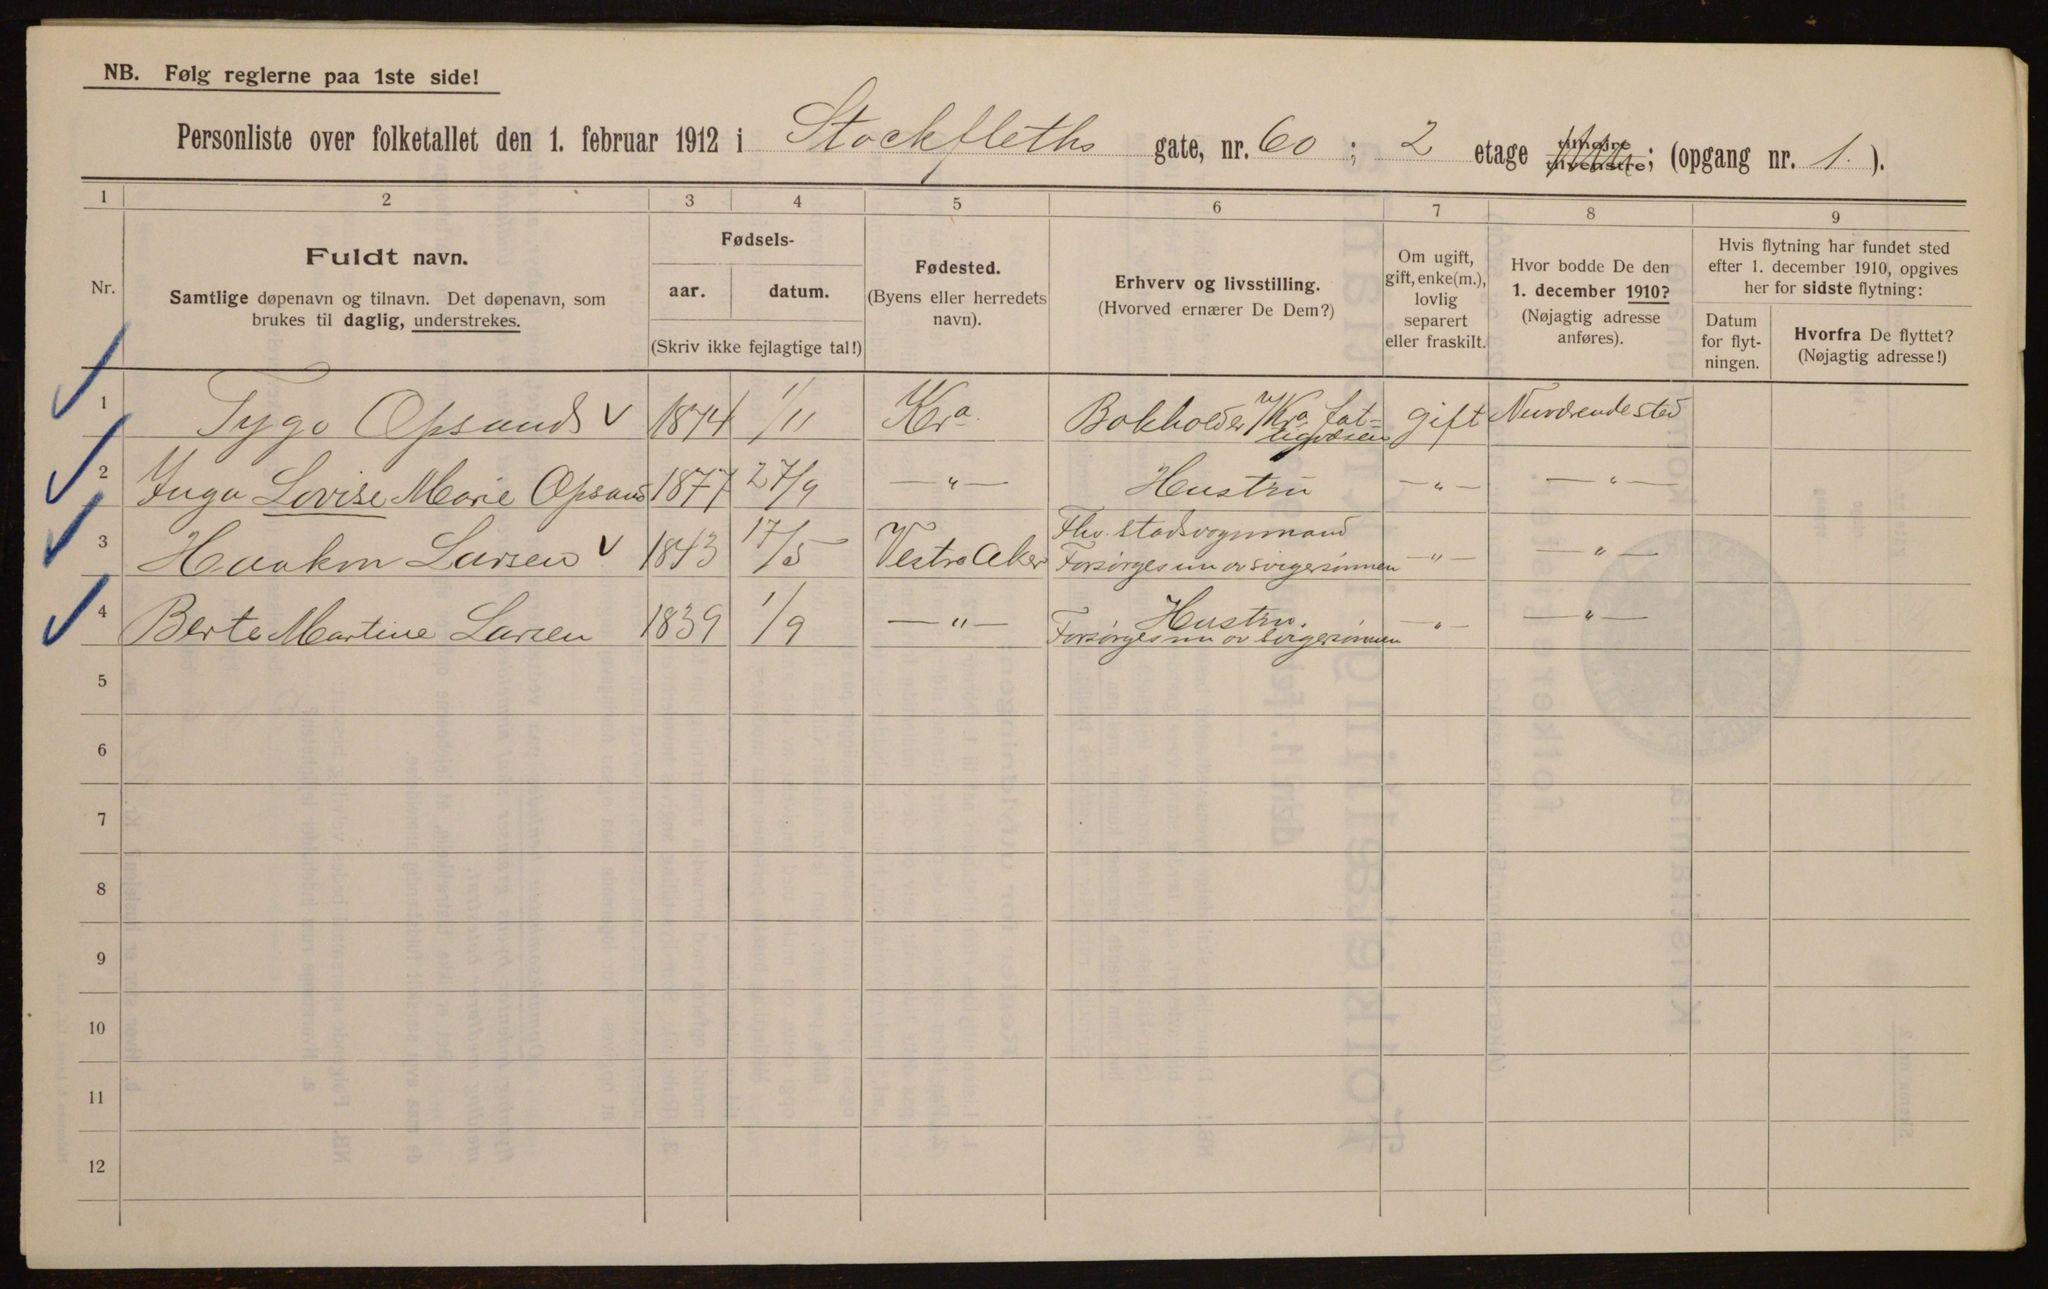 NB. Følg reglerne paa 1ste side!
Personliste over folketallet den 1. februar 1912 i Stockfleths gate, nr. 60 ; 2 etage tilhøire tilvenstre; (opgang nr. 1. ).
1 2 3 4 5 6 7 8 9
Nr.
Fuldt navn.
Samtlige døpenavn og tilnavn. Det døpenavn, som
brukes til daglig, understrekes.
Fødsels-
aar. datum.
(Skriv ikke fejlagtige tal!)
Fødested.
(Byens eller herredets
navn).
Erhverv og livsstilling.
(Hvorved ernærer De Dem?)
Om ugift,
gift, enke(m.),
lovlig
separert
eller fraskilt.
Hvor bodde De den
1. december 1910?
(Nøjagtig adresse
anføres).
Hvis flytning har fundet sted
efter 1. december 1910, opgives
her for sidste flytning:
Datum
for flyt-
ningen.
Hvorfra De flyttet?
(Nøjagtig adresse!)
1 Tygo Opsand v 1874 1/11 Kra. Bokholder v/Kra fat-
tigvæsen gift Nuværende sted
2 Inga Lovise Marie Opsand 1877 27/9 — " — Hustru — " — — " —
3 Haakon Larsen v 1843 17/5 Vestre Aker Fhv. stadsvognmand
Forsørges nu av svigersønnen — " — — " —
4 Berte Martine Larsen 1839 1/9 — " — Hustru.
Forsørges nu av svigersønnen — " — — " —
5
6
7
8
9
10
11
12